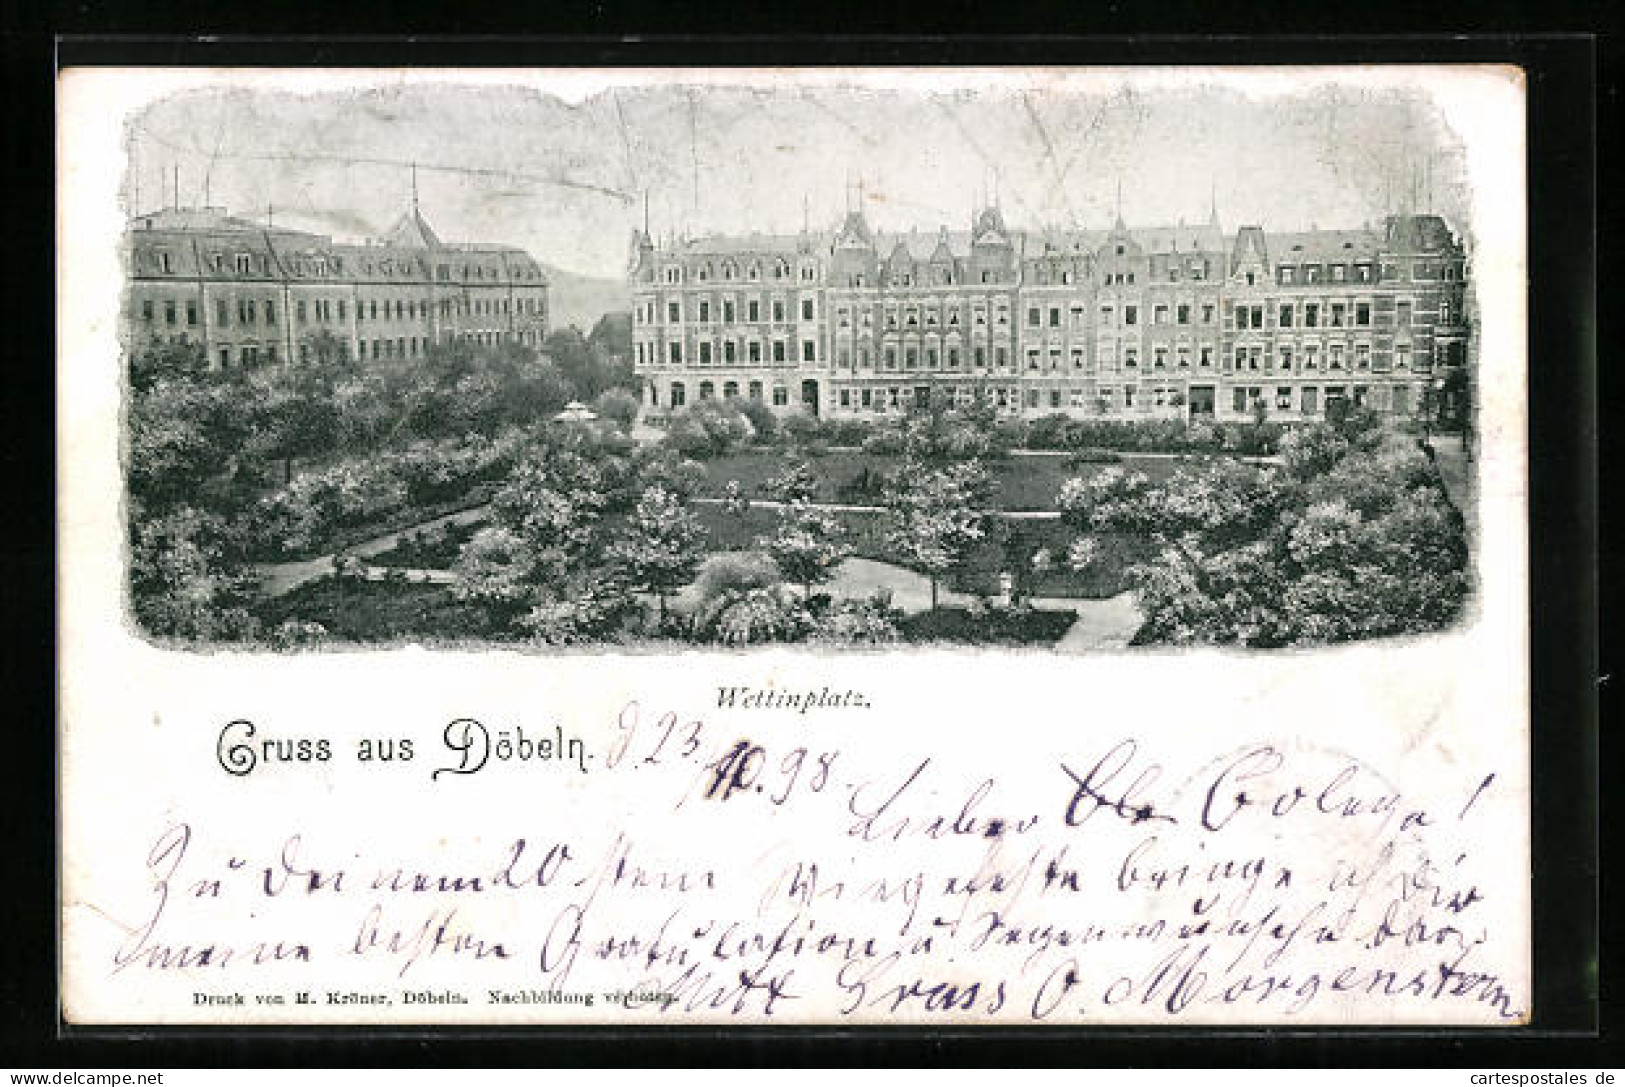 Wettinplatz.
Gruss aus Döbeln. d. 23. 10. 98.
Lieber Colega!
Zu Deinem 20 stem Wiegefeste bringe ich Dir
meine besten Gratulation u Segenwunsche dar.
Mitt Gruss O. Morgenstern
Druck von M. Kröner, Döbeln. Nachbildung verboten.
cartespostales de